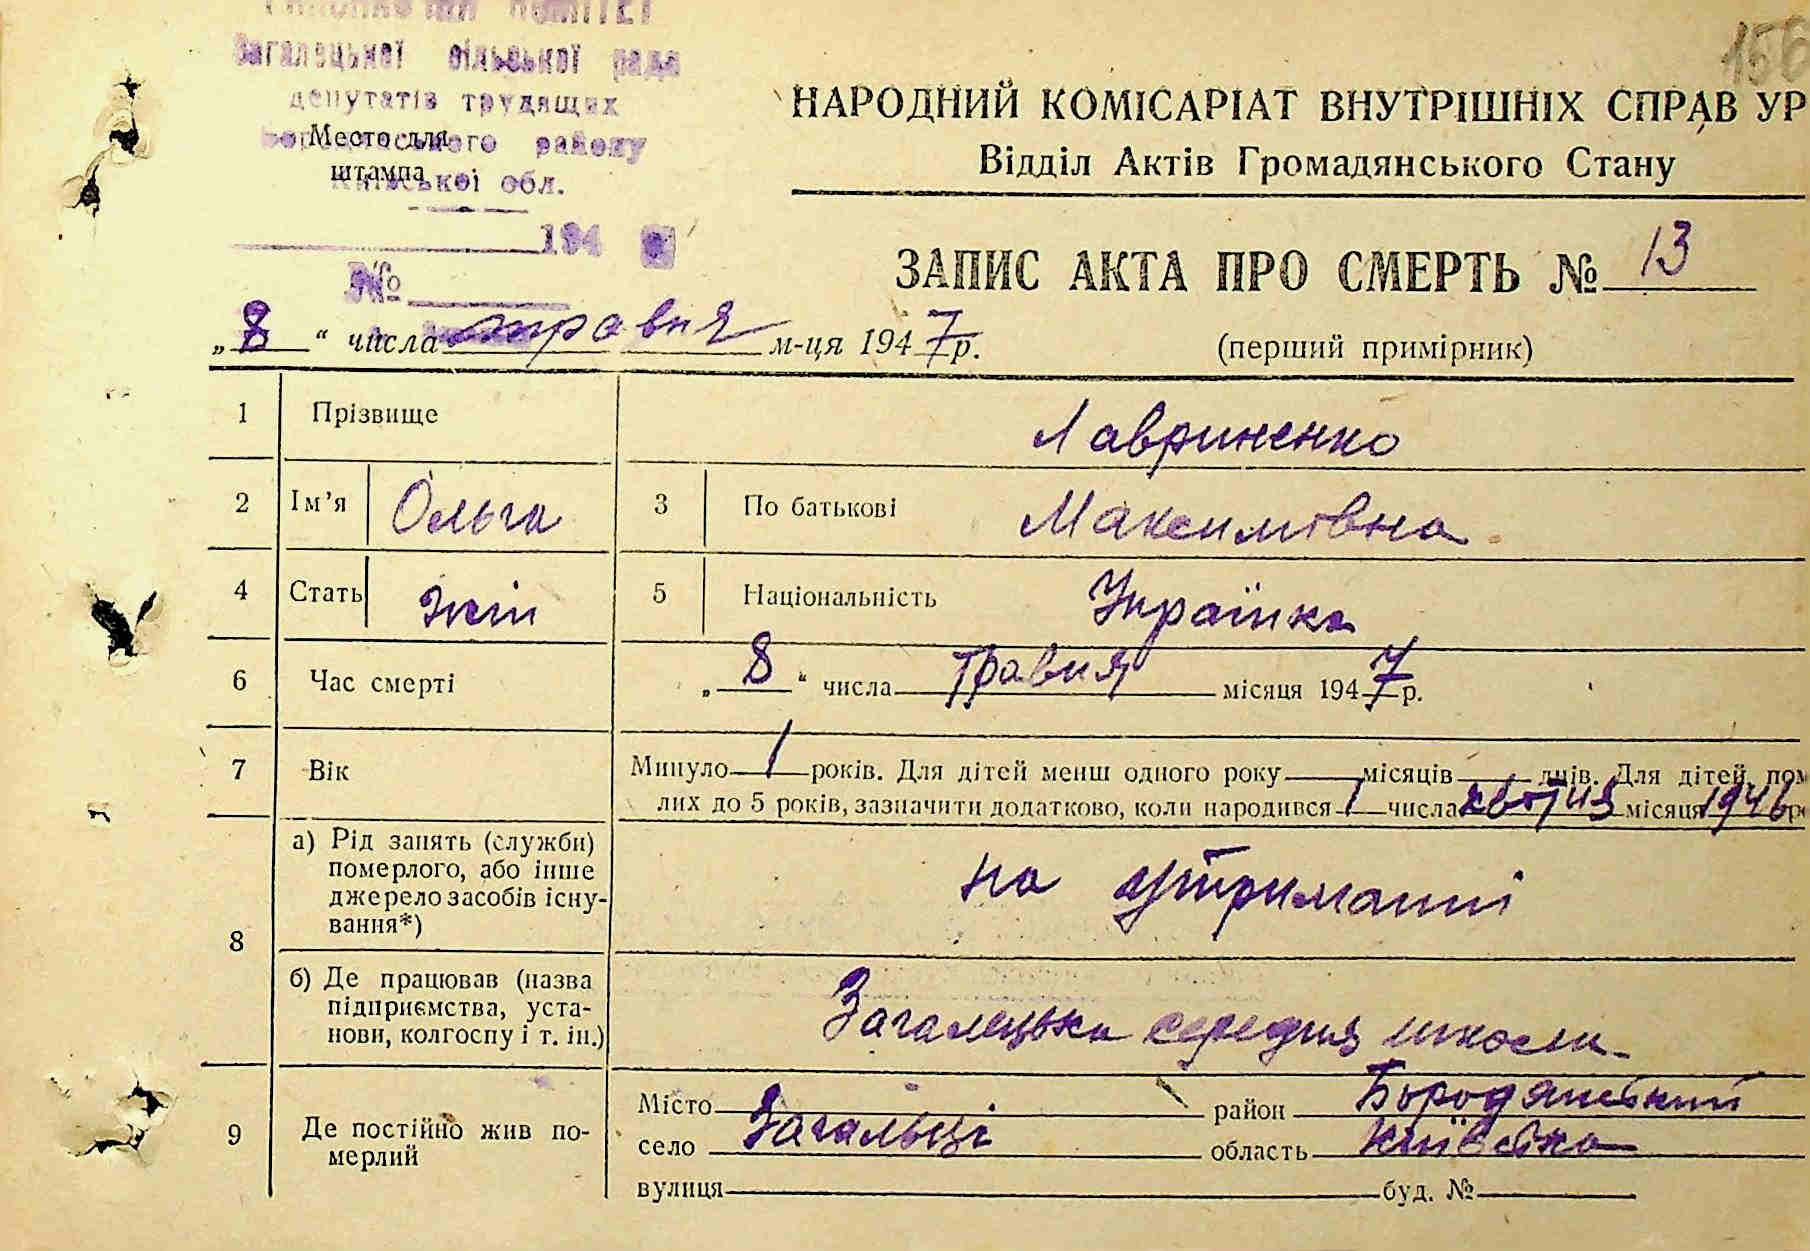 156
Загалецької сільської ради
депутатів трудящих
Место для
района
штампа
Київської обл.
194
№
НАРОДНИЙ КОМІСАРІАТ ВНУТРІШНІХ СПРАВ УР
Відділ Актів Громадянського Стану
ЗАПИС АКТА ПРО СМЕРТЬ № 13
„8“ числа травня м-ця 1947 р.
(перший примірник)
1 Прізвище Лавриненко
2 Ім’я Ольга 3 По батькові Максимівна
4 Стать жін 5 Національність Українка
6 Час смерті „8“ числа травня місяця 1947 р.
7 Вік Минуло 1 років. Для дітей менш одного року місяців днів. Для дітей пом
лих до 5 років, зазначити додатково, коли народився 1 числа квітня місяця 1946 ро
8 а) Рід занять (служби)
померлого, або інше
джерело засобів існу-
вання*)
на утриманні
б) Де працював (назва
підприємства, уста-
нови, колгоспу і т. ін.)
Загалецька середня школи
9 Де постійно жив по-
мерлий
Місто район Бородянський
село Загальці область Київська
вулиця буд. №